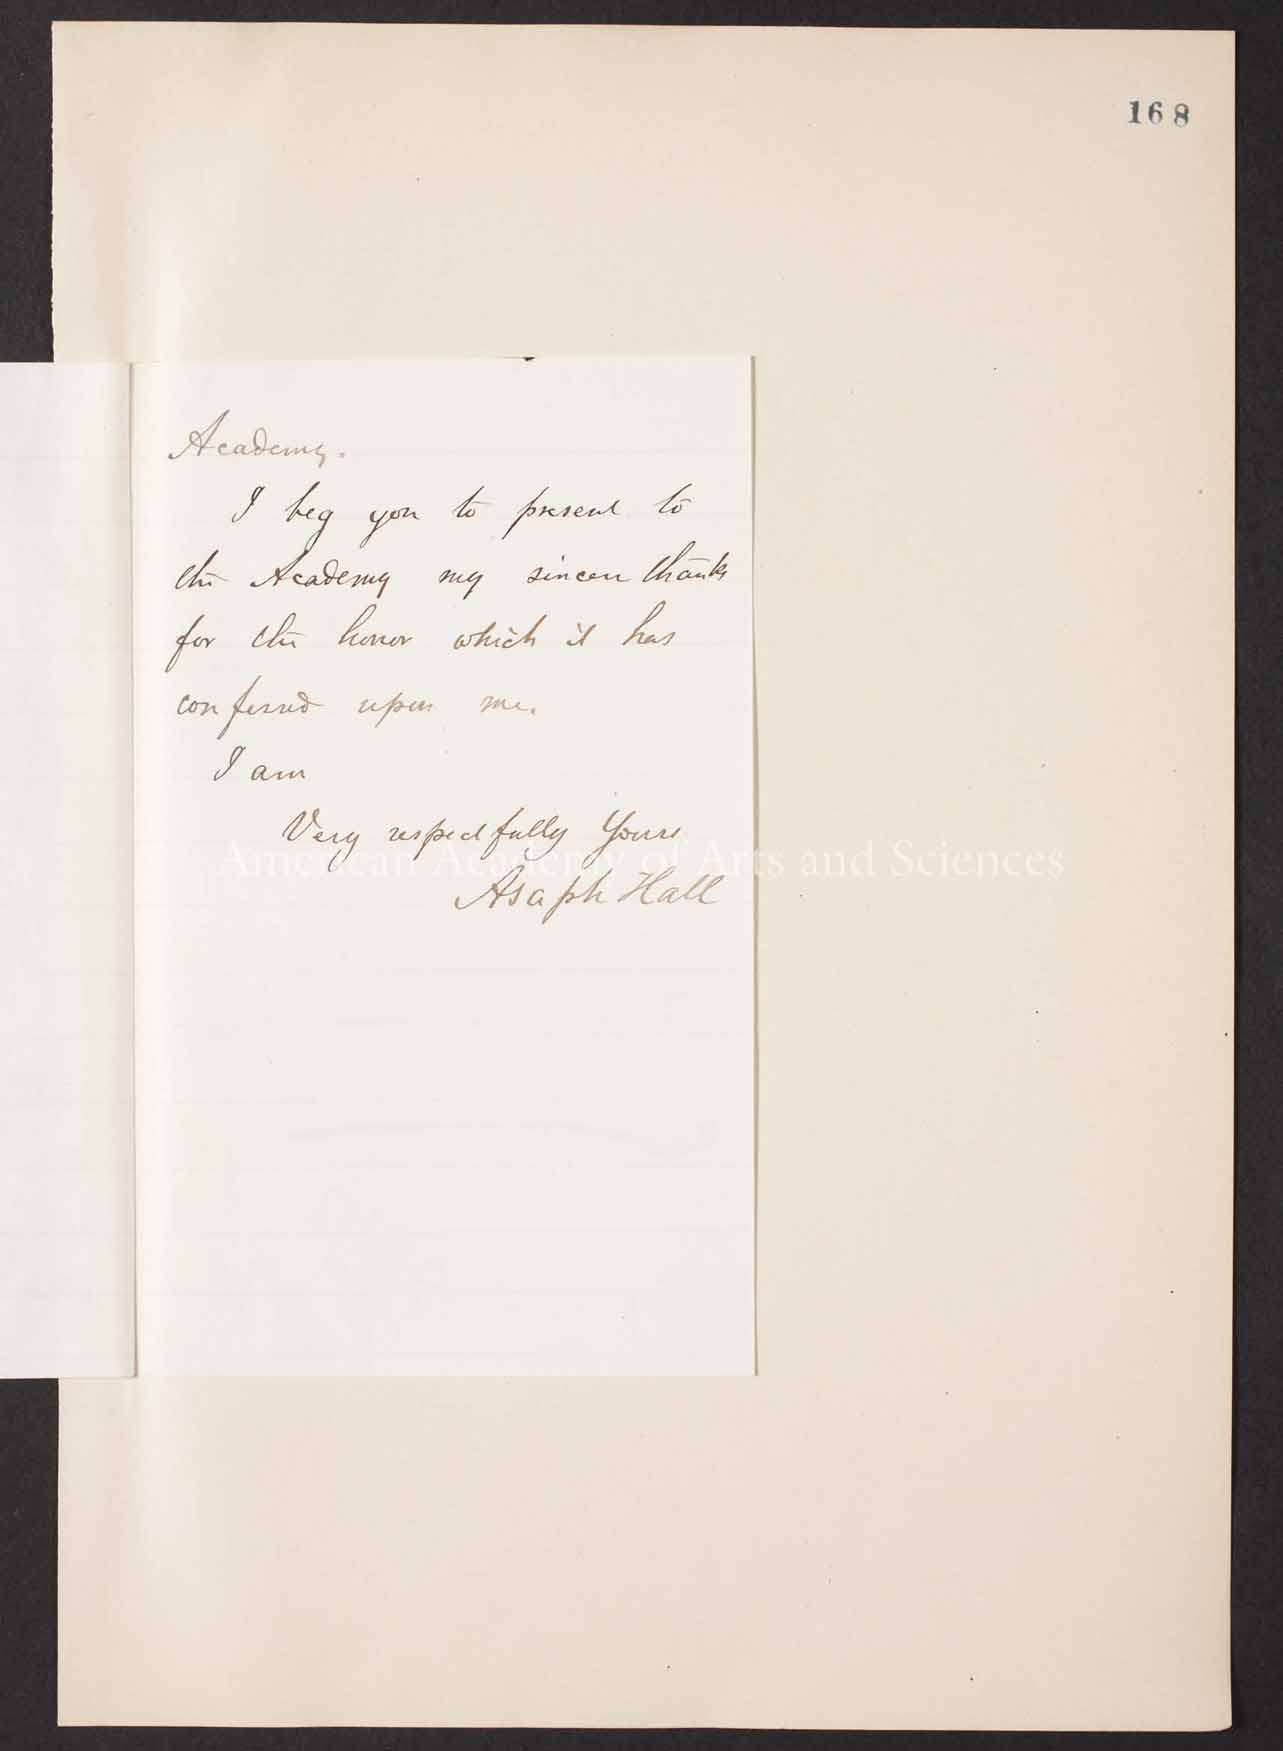 168
Academy.
I beg you to present to
the Academy my sincere thanks
for the honor which it has
conferred upon me.
I am
Very respectfully Yours
American Academy of Arts and Sciences
Asaph Hall